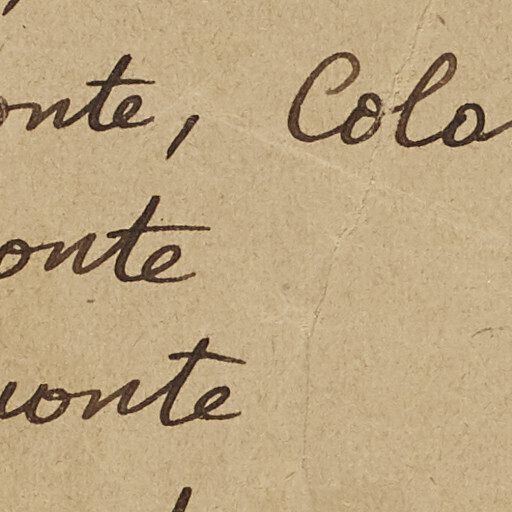 onte, Colo
onte
uonte